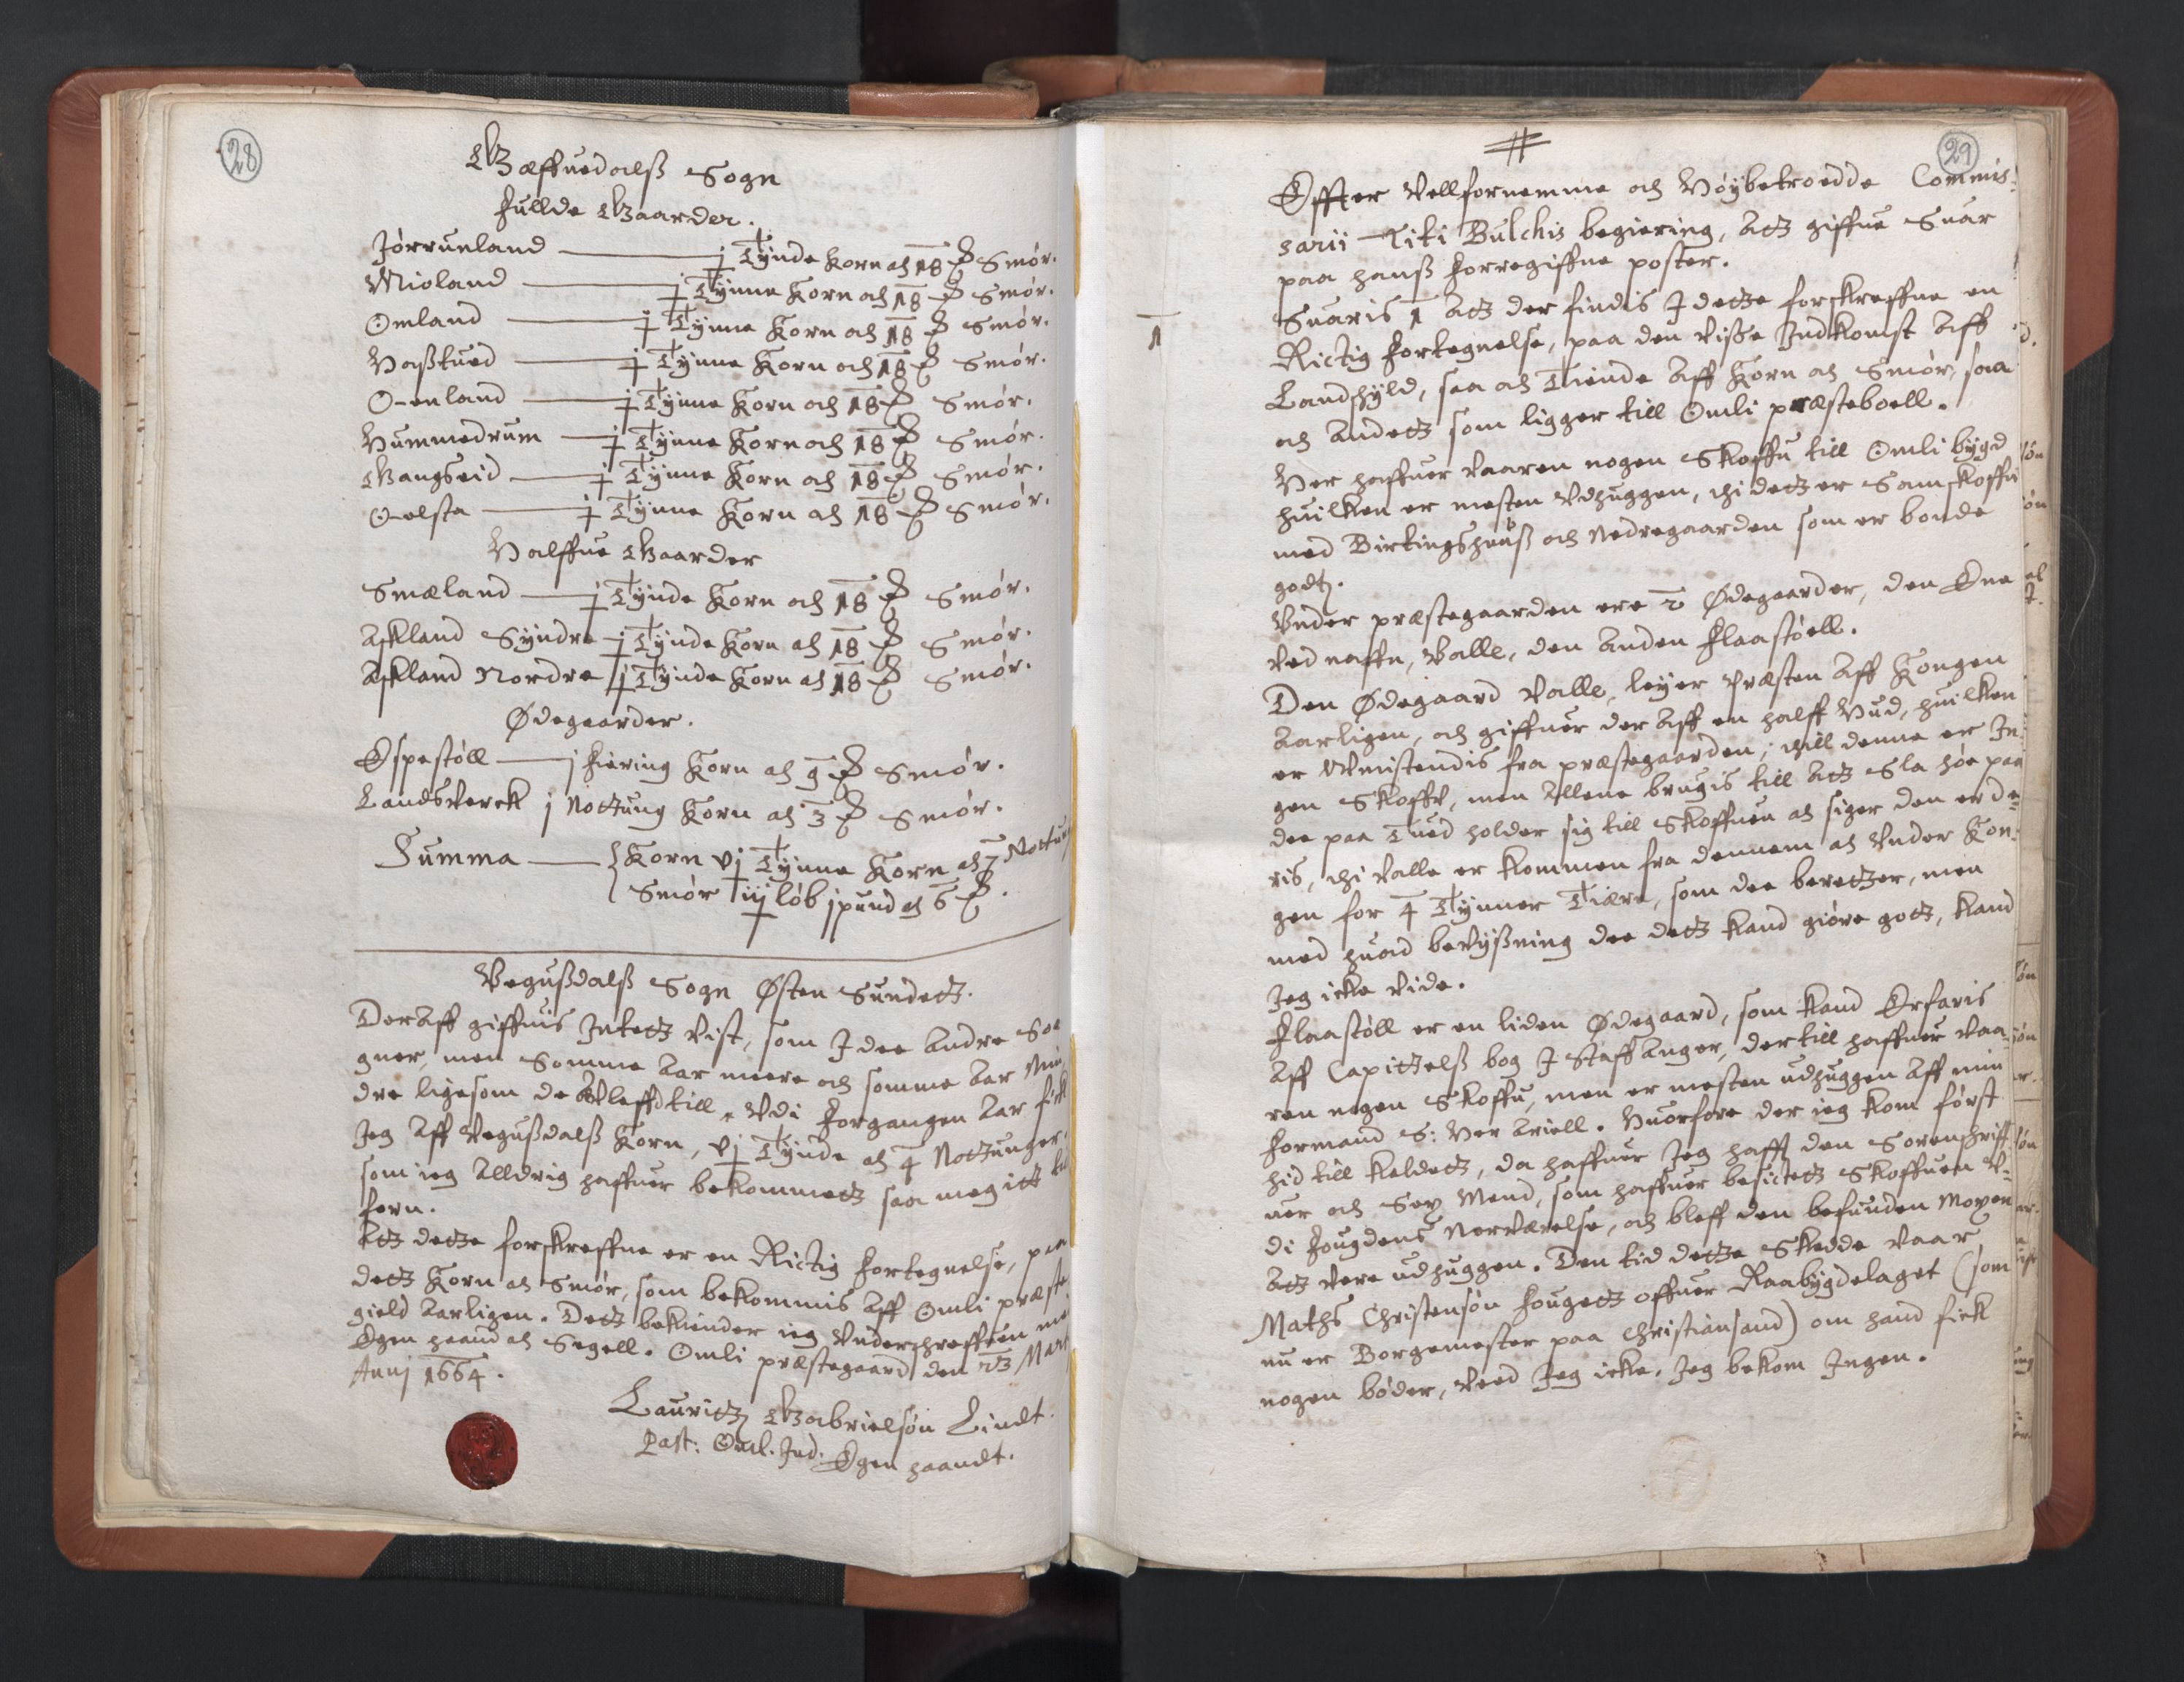 28
Gæffuedalß Sogn
Fullde Gaarder.
Jørrunland — j Tynde Korn och 18 ℔ Smør.
Mioland — j Tynne Korn och 18 ℔ Smør.
Omland — j Tynne Korn och 18 ℔ Smør.
Haßtued — j Tynne Korn och 18 ℔ Smør.
Ouenland — j Tynne Korn och 18 ℔ Smør.
Hummedrum — j Tynne Korn och 18 ℔ Smør.
Gangseid — j Tynne Korn och 18 ℔ Smør.
Oelsta — j Tynne Korn och 18 ℔ Smør.
Halffue Gaarder
Smæland — j Tynde Korn och 18 ℔ Smør.
Askland Syndre j Tynde Korn och 18 ℔ Smør.
Askland Nordre j Tynde Korn och 18 ℔ Smør.
Ødegaarder.
Espestøll — j fiering Korn och 9 ℔ Smør.
Landsverck j Nottung Korn och 3 ℔ Smør.
Summa — Korn vj Tynne Korn och 7 Nottung
Smør iij løb j pund och 6 ℔.
Vegußdalß Sogn Østen Sundett.
Deraff giffuis Intett vist, som J dee andre So
gner, men Somme Aar meere och somme Aar Min
dre ligesom de afleffd till. Vdi forgangen Aar fick
Jeg aff Vegußdalß Korn, vj Tynde och 4 Nottunger.
som ieg Alldrig haffuer bekommett saa megitt till
forn.
Att dette forskreffne er en Rictig fortegnelse, paa
dett Korn och Smør, som bekommis aff Omli præste
gield Aarligen. Dett bekiender ieg Vnderschreffuen med
Egen haand och Segell. Omli præstegaard den 23 Mart
Anni 1664.
Lauritz Gabrielsøn Lindt.
Past: Oml. Ind. Egen haandt.
29
Effter Vellfornemme och Høybetroedde Commis:
sarii Titi Bulchis begiering, Att giffue Suar
paa hanß forregiffne poster.
1
Suaris 1 Att der findis J dette forskreffne en
Rictig fortegnelse, paa den visse Indkomst Aff
Landschyld, saa och Tiende Aff Korn och Smør, saa
och Andett som ligger till Omli præsteboell.
Her haffuer vaaren nogen Skoffu till Omli bygd
huilken er mesten vdhuggen, thi dett er Samskoffu
med Birkingshuuß och Nedregaarden som er bonde
godtz.
Vnder præstegaarden ere 2 Ødegaarder, den Ene
ved naffn, Valle, den Anden Flaastøell.
Den Ødegaard Valle, leyer Præsten Aff Kongen
Aarligen, och giffuer der Aff en halff Hud, huilken
er Vmistendis fra præstegaarden, thill denne er In:
gen Skoffv, men Allene brugis till Att Sla Høe paa
dee paa Tued holder sig till Skoffuen och siger den er de=
ris, thi Valle er kommen fra dennem och Vnder Kon:
gen for 4 Tynner Tiære, som dee beretter, men
med huad bevyßning dee dett kand giøre gott, kand
Jeg icke vide.
Flaastøll er en liden Ødegaard, som kand Erfaris
Aff Capittelß bog J Staffanger, dertill haffuer vaa:
ren nogen Skoffu, men er mesten udhuggen Aff min
formand S: Her Ariell. Huorfore der ieg kom først
hid till kaldett, da haffuer Jeg hafft den Sorenschriff
uer och Sex Mend, som haffuer besictett Skoffuen V=
di fougdens Nerværelse, och bleff den befunden Moxen
Att vere udhuggen. Den tid dette Skedde vaar
Maths Christensøn fougett offuer Raabygdelaget (som
nu er Borgemester paa Christiansand) om hand fick
nogen bøder, veed Jeg icke. Jeg bekom Ingen.